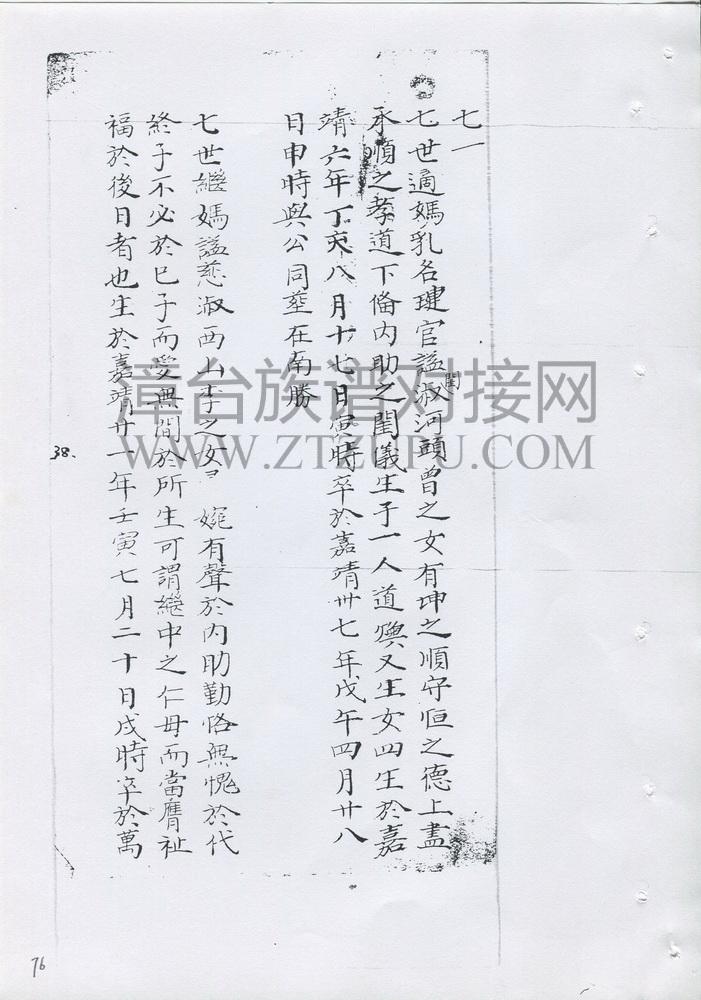 七一
七世適媽乳名璉官謚淑閨河頭曾之女有坤之順守恒之德上盡
承順之孝道下俻内助之閨儀生子一人道 又生女四生於嘉
靖六年丁亥八月十七日寅時卒於嘉靖卅七年戊午四月廿八
日申時與公同塟在南勝
七世繼媽謚慈淑西山李之女 婉有聲於内助勤恪無愧於代
終子不必於巳子而愛無間於所生可謂繼中之仁母而當膺祉
福於後日者也生於嘉靖廿一年壬寅七月二十日戌時卒於萬
38、
76
漳台族谱对接网
WWW.ZTZUPU.COM